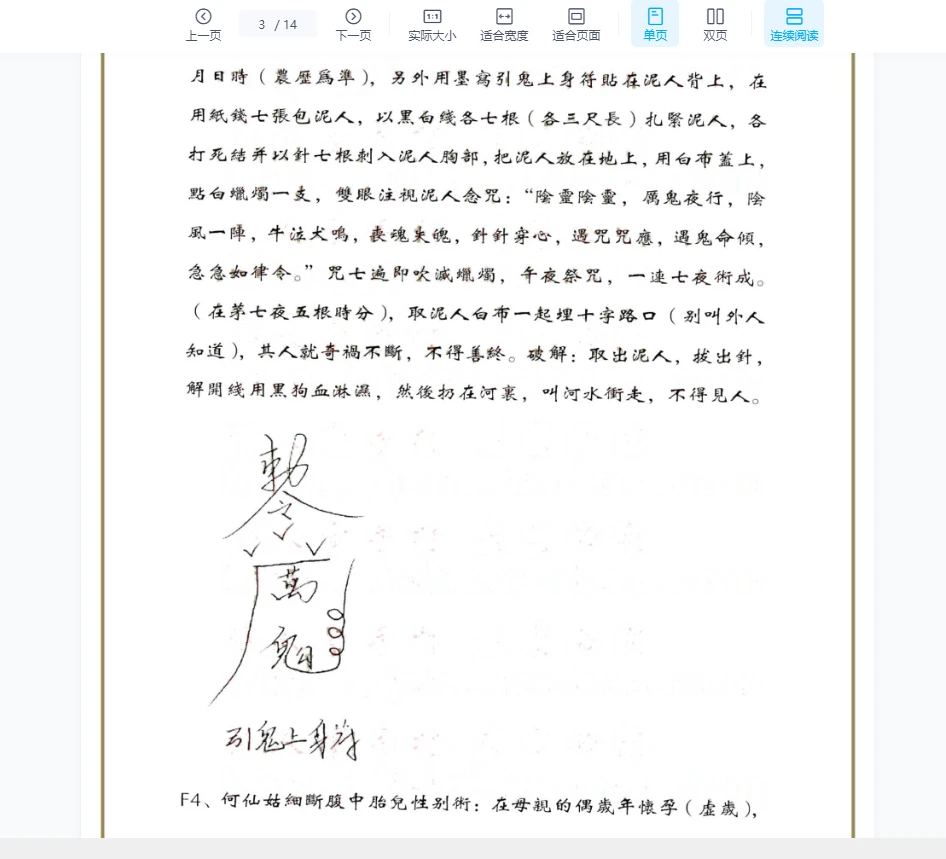 上一页
3 / 14
下一页
1:1
实际大小
适合宽度
适合页面
单页
双页
连续阅读
月日時（農歷爲準），另外用墨寫引鬼上身符貼在泥人背上，在
用紙錢七張包泥人，以黑白綫各七根（各三尺長）扎緊泥人，各
打死結并以針七根刺入泥人胸部，把泥人放在地上，用白布蓋上，
點白蠟燭一支，雙眼注視泥人念咒：“陰靈陰靈，厲鬼夜行，陰
風一陣，牛泣犬鳴，喪魂失魄，針針穿心，遇咒咒應，遇鬼命傾，
急急如律令。”咒七遍即吹滅蠟燭，午夜祭咒，一連七夜術成。
（在茅七夜五根時分），取泥人白布一起埋十字路口（别叫外人
知道），其人就奇禍不斷，不得善終。破解：取出泥人，拔出針，
解開綫用黑狗血淋濕，然後扔在河裏，叫河水衝走，不得見人。
勅
令
萬
鬼
引鬼上身符
F4、何仙姑細斷腹中胎兒性别術：在母親的偶歲年懷孕（虚歲），